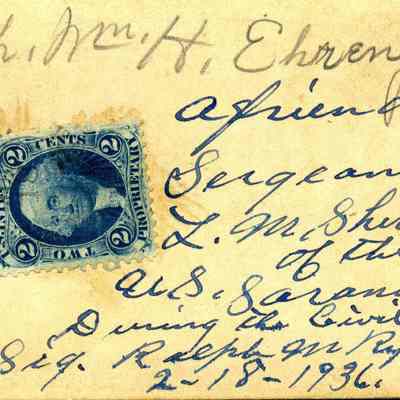 Wm. H. Ehren
A frien
Sergean
L. M. Sher
of the
U.S. Saran
During the Civil
Sig. Ralph M
2-18-1936.
2 CENTS 2
PROPRIETARY
2 TWO 2